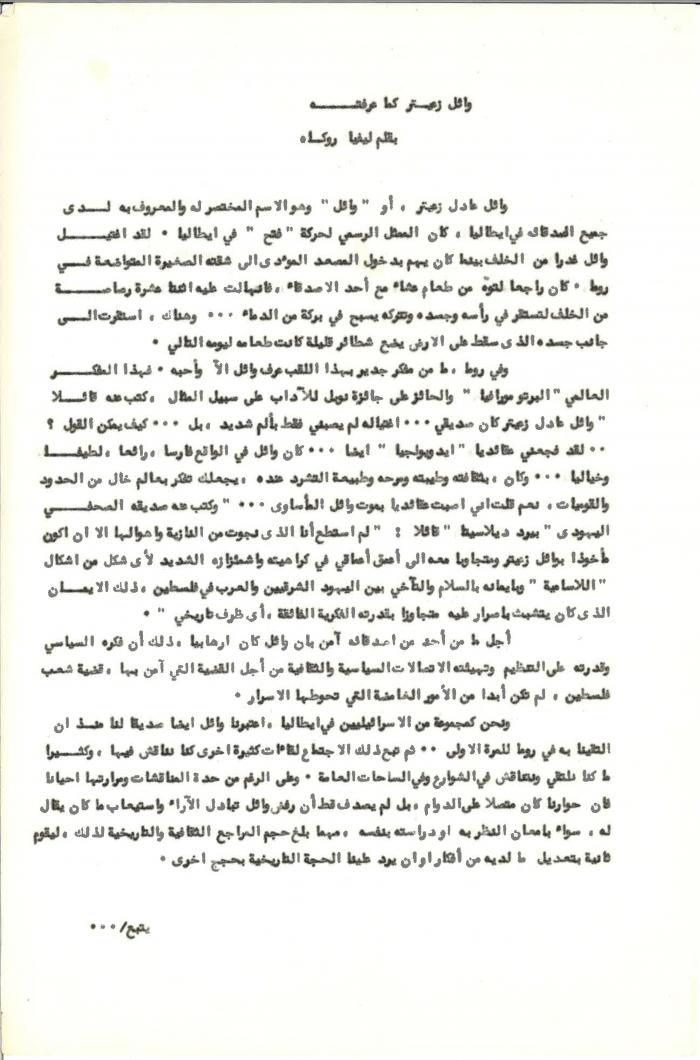 وائل زعيتر كما عرفته
بقلم ليفيا روكاه
وائل عادل زعيتر ، أو " وائل " وهو الاسم المختصر له والمعروف به لدى
جميع اصدقائه في ايطاليا ، كان الممثل الرسمي لحركة " فتح " في ايطاليا ٠ لقد اغتيل
وائل غدرا من الخلف بينما كان يهم بدخول المصعد المؤدى الى شقته الصغيرة المتواضعة في
روما ٠ كان راجعا لتوه من طعام عشاء مع أحد الاصدقاء ، فانهالت عليه اثنتا عشرة رصاصة
من الخلف لتستقر في رأسه وجسده وتتركه يسبح في بركة من الدماء ٠٠٠ وهناك ، استقرت الى
جانب جسده الذى سقط على الارض بضع شطائر قليلة كانت طعامه ليومه التالي ٠
وفي روما ، ما من مفكر جدير بهذا اللقب عرف وائل الاّ وأحبه ٠ فهذا المفكر
العالمي " البرتو مورافيا " والحائز على جائزة نوبل للآداب على سبيل المثال ، كتب عنه قائلا
" وائل عادل زعيتر كان صديقي ٠٠٠ اغتياله لم يصبني فقط بألم شديد ، بل ٠٠٠ كيف يمكن القول ؟
٠٠ لقد فجعني عقائديا " ايديولجيا " ايضا ٠٠٠ كان وائل في الواقع فارسا ، رائعا ، لطيفا
وخياليا ٠٠٠ وكان ، بثقافته وطيبته ومرحه وطبيعة التشرد عنده ، يجعلك تفكر بعالم خال من الحدود
والقوميات ، نعم قلت اني اصبت عقائديا بموت وائل المأساوى ٠٠٠ " وكتب عنه صديقه الصحفي
اليهودى " بيرد ديلاسيتا " قائلا : " لم استطع أنا الذى نجوت من النازية واهوالها الا ان اكون
مأخوذا بوائل زعيتر ومتجاوبا معه الى أعمق أعماقي في كراهيته واشمئزازه الشديد لأى شكل من اشكال
" اللاسامية " وبايمانه بالسلام والتآخي بين اليهود الشرقيين والعرب في فلسطين ، ذلك الايمان
الذى كان يتشبث باصرار عليه متجاوزا بقدرته الفكرية الفائقة ، أى ظرف تاريخي " ٠
أجل ما من أحد من اصدقائه آمن بان وائل كان ارهابيا ، ذلك أن فكره السياسي
وقدرته على التنظيم وتهيئته الاتصالات السياسية والثقافية من أجل القضية التي آمن بها ، قضية شعب
فلسطين ، لم تكن أبدا من الأمور الغامضة التي تحوطها الاسرار ٠
ونحن كمجموعة من الاسرائيليين في ايطاليا ، اعتبرنا وائل ايضا صديقا لنا منذ ان
التقينا به في روما للمرة الاولى ٠٠ ثم تبع ذلك الاجتماع لقاءات كثيرة اخرى كنا نناقش فيها ، وكثيرا
ما كنا نلتقي ونتناقش في الشوارع وفي الساحات العامة ٠ وعلى الرغم من حدة المناقشات ومرارتها احيانا
فان حوارنا كان متصلا على الدوام ، بل لم يصدف قط أن رفض وائل تبادل الآراء واستيعاب ما كان يقال
له ، سواء بامعان النظر به او دراسته بنفسه ، مهما بلغ حجم المراجع الثقافية والتاريخية لذلك ، ليقوم
ثانية بتعديل ما لديه من أفكار او ان يرد علينا الحجة التاريخية بحجج اخرى ٠
يتبع/٠٠٠